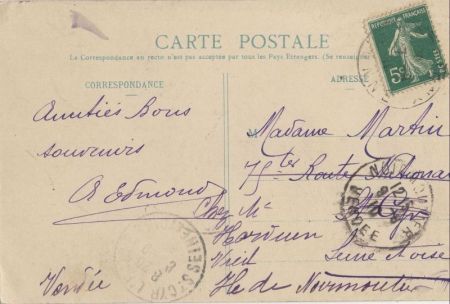 CARTE POSTALE
La Correspondance au recto n'est pas acceptée par tous les Pays Etrangers. (Se renseigner
CORRESPONDANCE
ADRESSE
REPUBLIQUE FRANÇAISE
5
Amitiés Bons
souvenirs
A Edmond
Vendée
Madame Martin
75 Route
Chez Mr
Seine et Oise
Ile de Noirmoutier
VENDEE